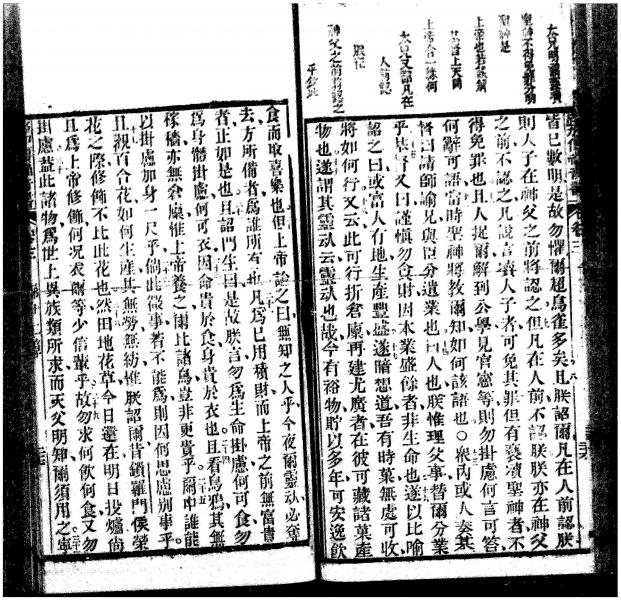 太兄明詔
聖神不得免罪分明
聖神是
上帝也若
上帝合一緣何
太兄又詔凡在
人前認
神父之前將認之
乎欽此
皆已數明是故勿懼爾超鳥雀多矣且朕詔爾凡在人前認朕
則人子在神父之前將認之但凡在人前不認朕朕亦在神父
之前不認之凡說言瀆人子者可免其罪但有褻瀆聖神者不
得免罪也且人捉爾解到公學見官憲等則勿掛慮何言可答
何辭可語當時聖神將教爾知如何該語也○衆內或人奏基
督曰請師諭兄與臣分遺業也曰人也朕惟理父事替爾分業
乎基督又曰謹慎勿貪財因本業盛餘者非生命也遂以比喻
詔之曰或富人有地生產豐盛遂暗想道吾有時菓無處可收
將如何行又云此可行折倉廩再建尤廣者在彼可藏諸菓產
物也遂謂其靈魂云靈魂也哉今有裕物貯以多年可安逸飲
食而取喜樂也但上帝諭之曰無知之人乎今夜爾靈魂必奪
去方所備者爲誰所有也凡爲己用積財而上帝之前無富貴
者正如是也且詔門生曰是故朕言勿爲生命掛慮何可食勿
爲身體掛慮何可衣因命貴於食身貴於衣也且看烏鴉其無
稼穡亦無倉廩惟上帝養之爾比諸鳥豈非更貴乎爾中誰能
以掛慮加身一尺乎倘此微事者不能爲則因何思慮別事乎
且觀百合花如何生產其無勞無紡惟朕詔爾昔鎖羅門侯榮
花之際修飾不比此花也然田地花草今日還在明日投爐尚
且爲上帝修飾何况衣爾等少信輩乎故勿求何飲何食又勿
掛慮蓋此諸物爲世上異族類所求而天父明知爾須用之寧